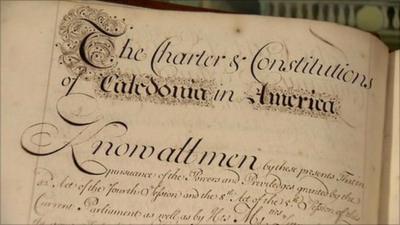 The Charter & Constitutions
of Caledonia in America
Know all men by these presents That in
pursuance of the Powers and Priviledges granted by the
Act of the fourth Session and the 8th Act of the 5th Session of this
Current Parliament as well as by His